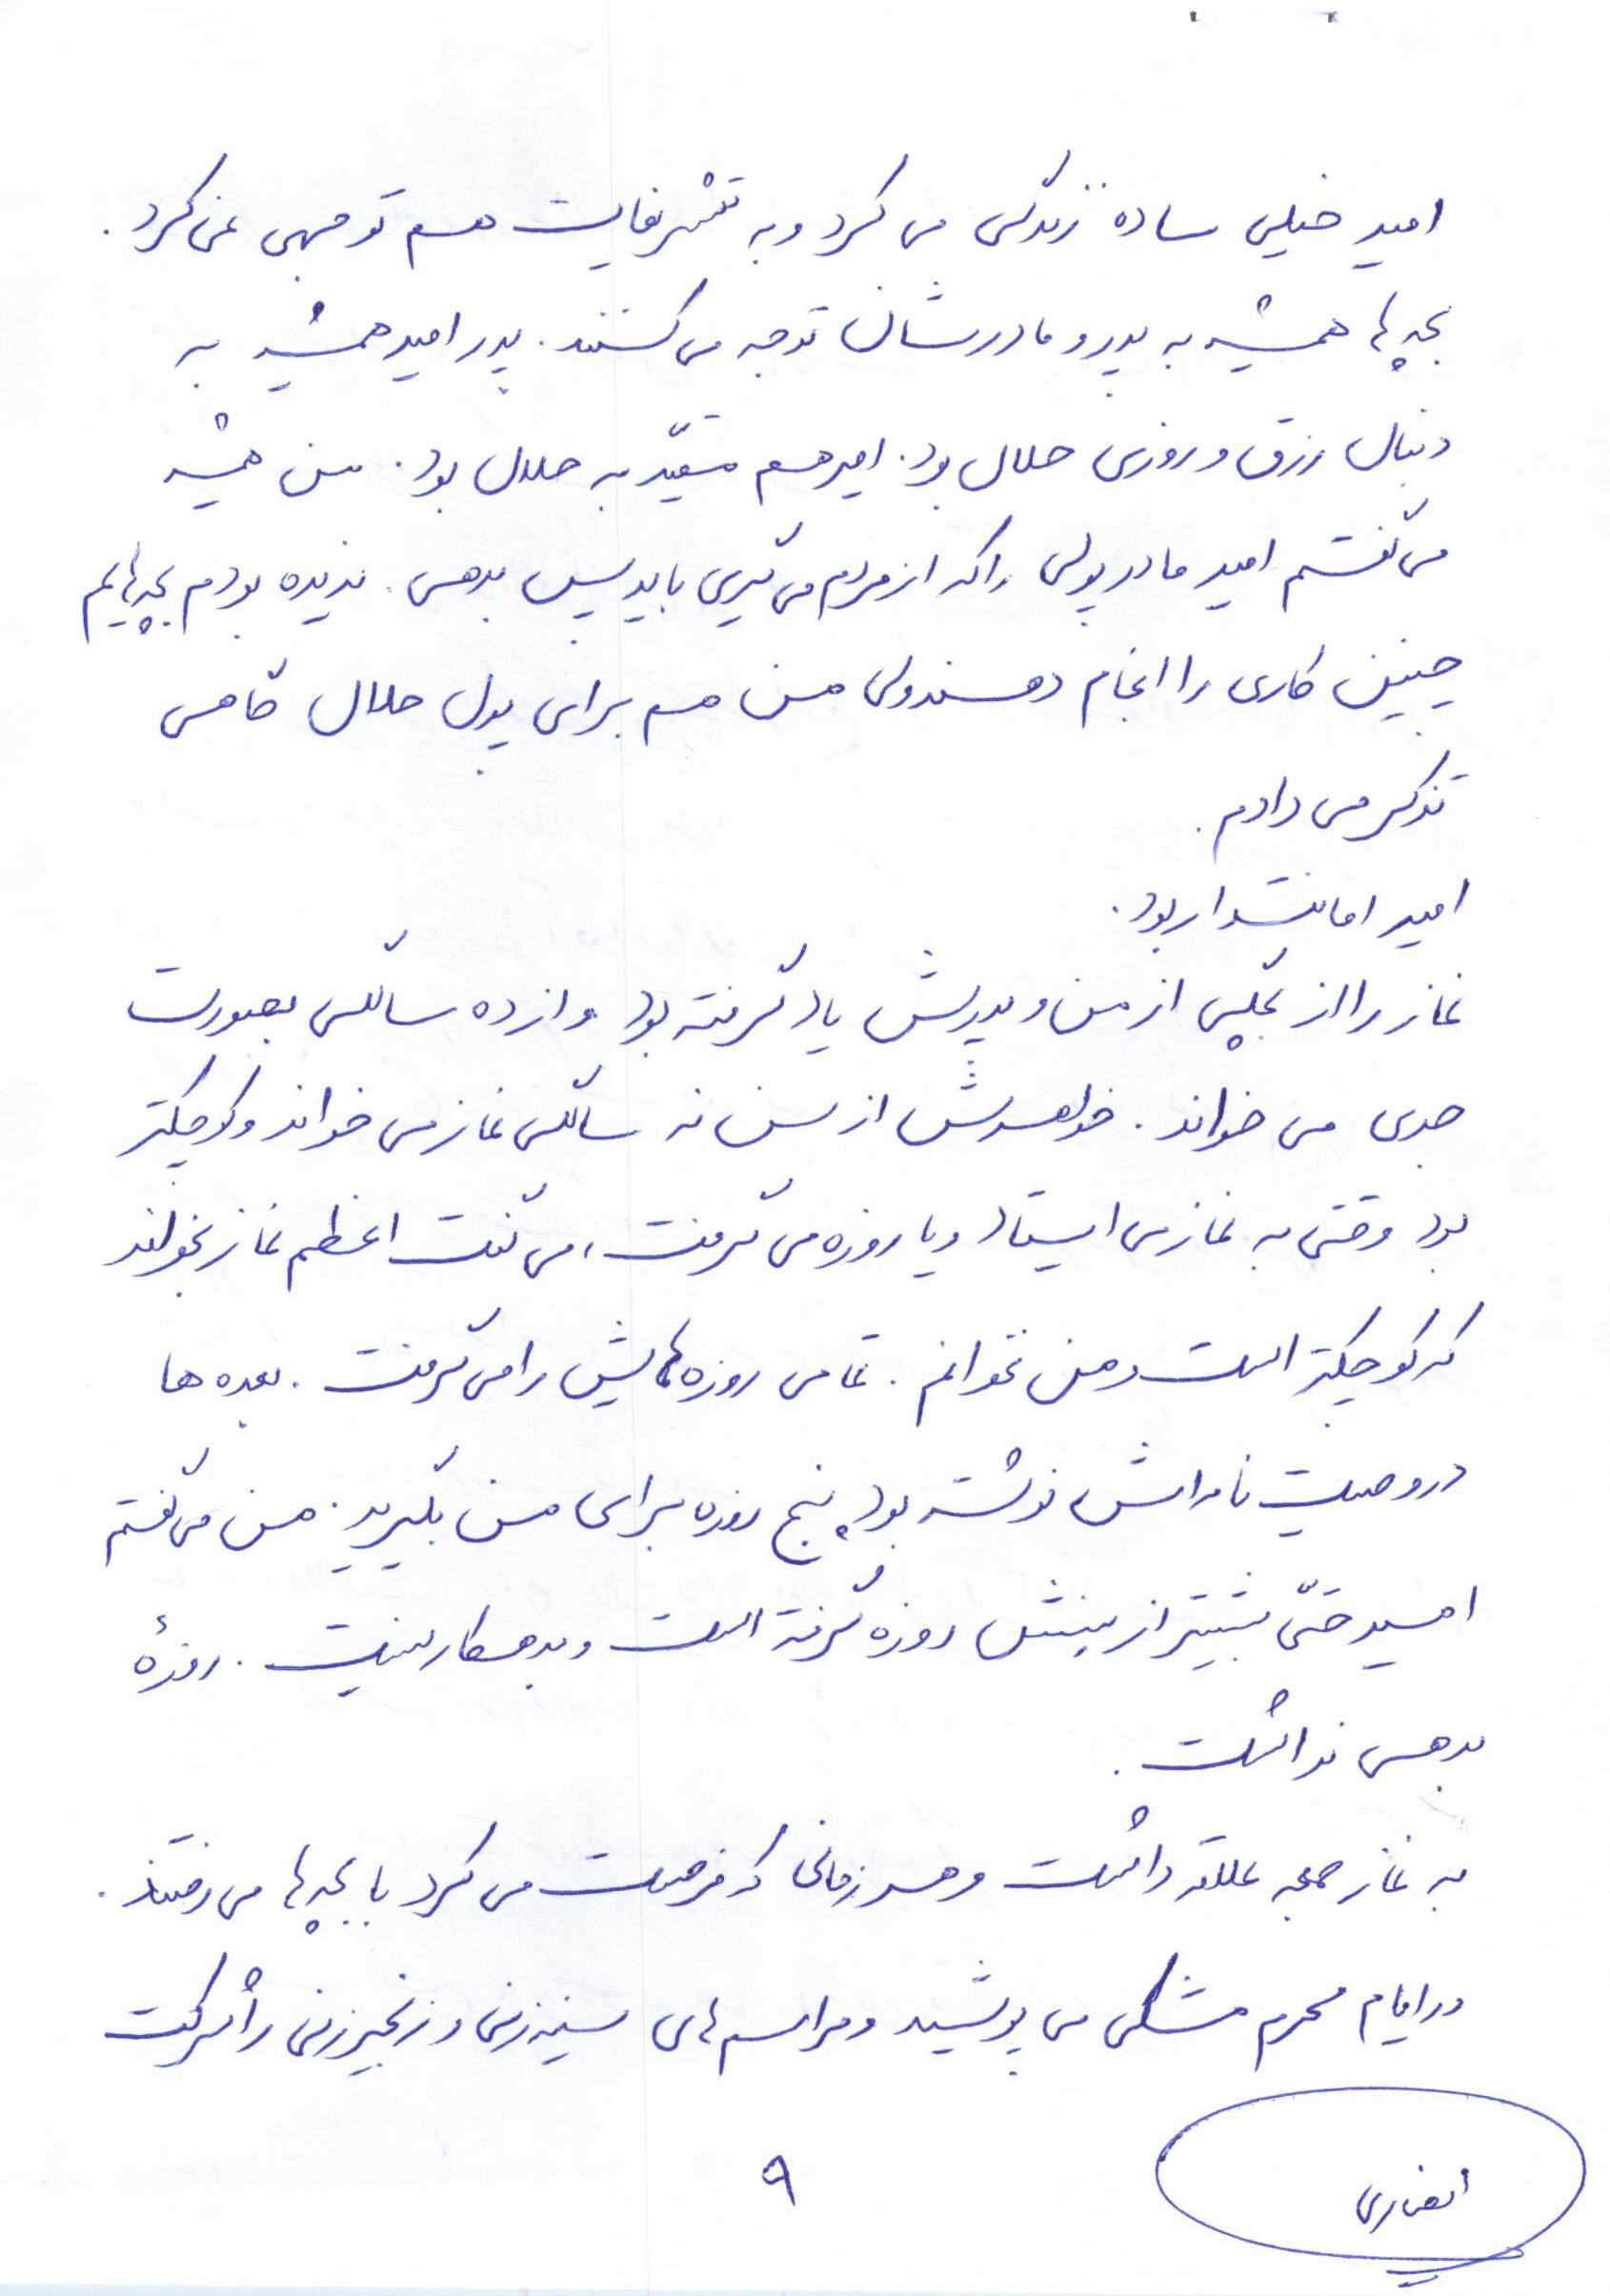 امید خیلی ساده زندگی می کرد و به تشریفات هم توجهی نمی کرد.
بچه ها همیشه به پدر و مادرشان توجه می کنند. پدر امید همیشه به
دنبال رزق و روزی حلال بود. امید هم مقیّد به حلال بود. من همیشه
می گفتم امید مادر پولی را که از مردم می گیری باید پس بدهی. ندیده بودم بچه هایم
چنین کاری را انجام دهند ولی من هم برای پول حلال گاهی
تذکر می دادم.
امید امانتدار بود.
نماز را از بچگی از من و پدرش یاد گرفته بود و از ده سالگی بصورت
جدی می خواند. خواهرش از سن نه سالگی نماز می خواند و کوچکتر
بود وقتی به نماز می ایستاد و یا روزه می گرفت، می گفت اعظم نماز بخواند
که کوچکتر است و من نخوانم. تمامی روزه هایش را می گرفت. بعدها
در وصیت نامه اش نوشته بود پنج روزه برای من بگیرید. من می گفتم
امید حتّی بیشتر از سنش روزه گرفته است و بدهکار نیست. روزۀ
بدهی نداشت.
به نماز جمعه علاقه داشت و هر زمانی که فرصت می کرد با بچه ها می رفتند.
در ایام محرم مشکی می پوشید و مراسم های سینه زنی و زنجیر زنی را شرکت
۹
انصاری